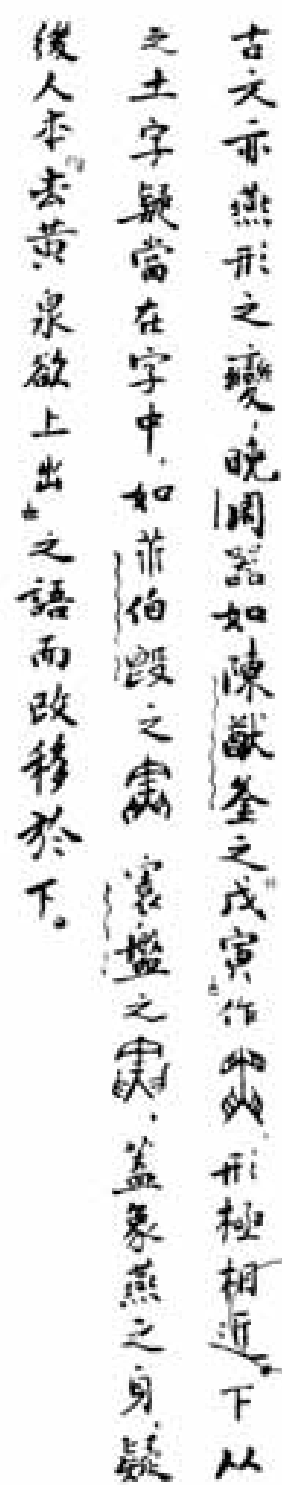 古文亦燕形之變，晚周器如陳猷釜之『戊寅』作，形極相近。下从
之土字疑當在字中，如䒞伯𣪘之　寰盤之，蓋象燕之身，疑
後人本『去黃泉欲上出』之語而改移於下。